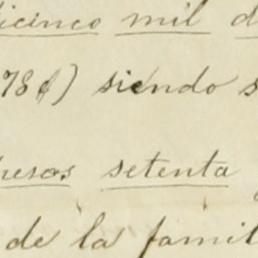 icinco mil d
78¢) siendo s
pesos setenta y
de la famil